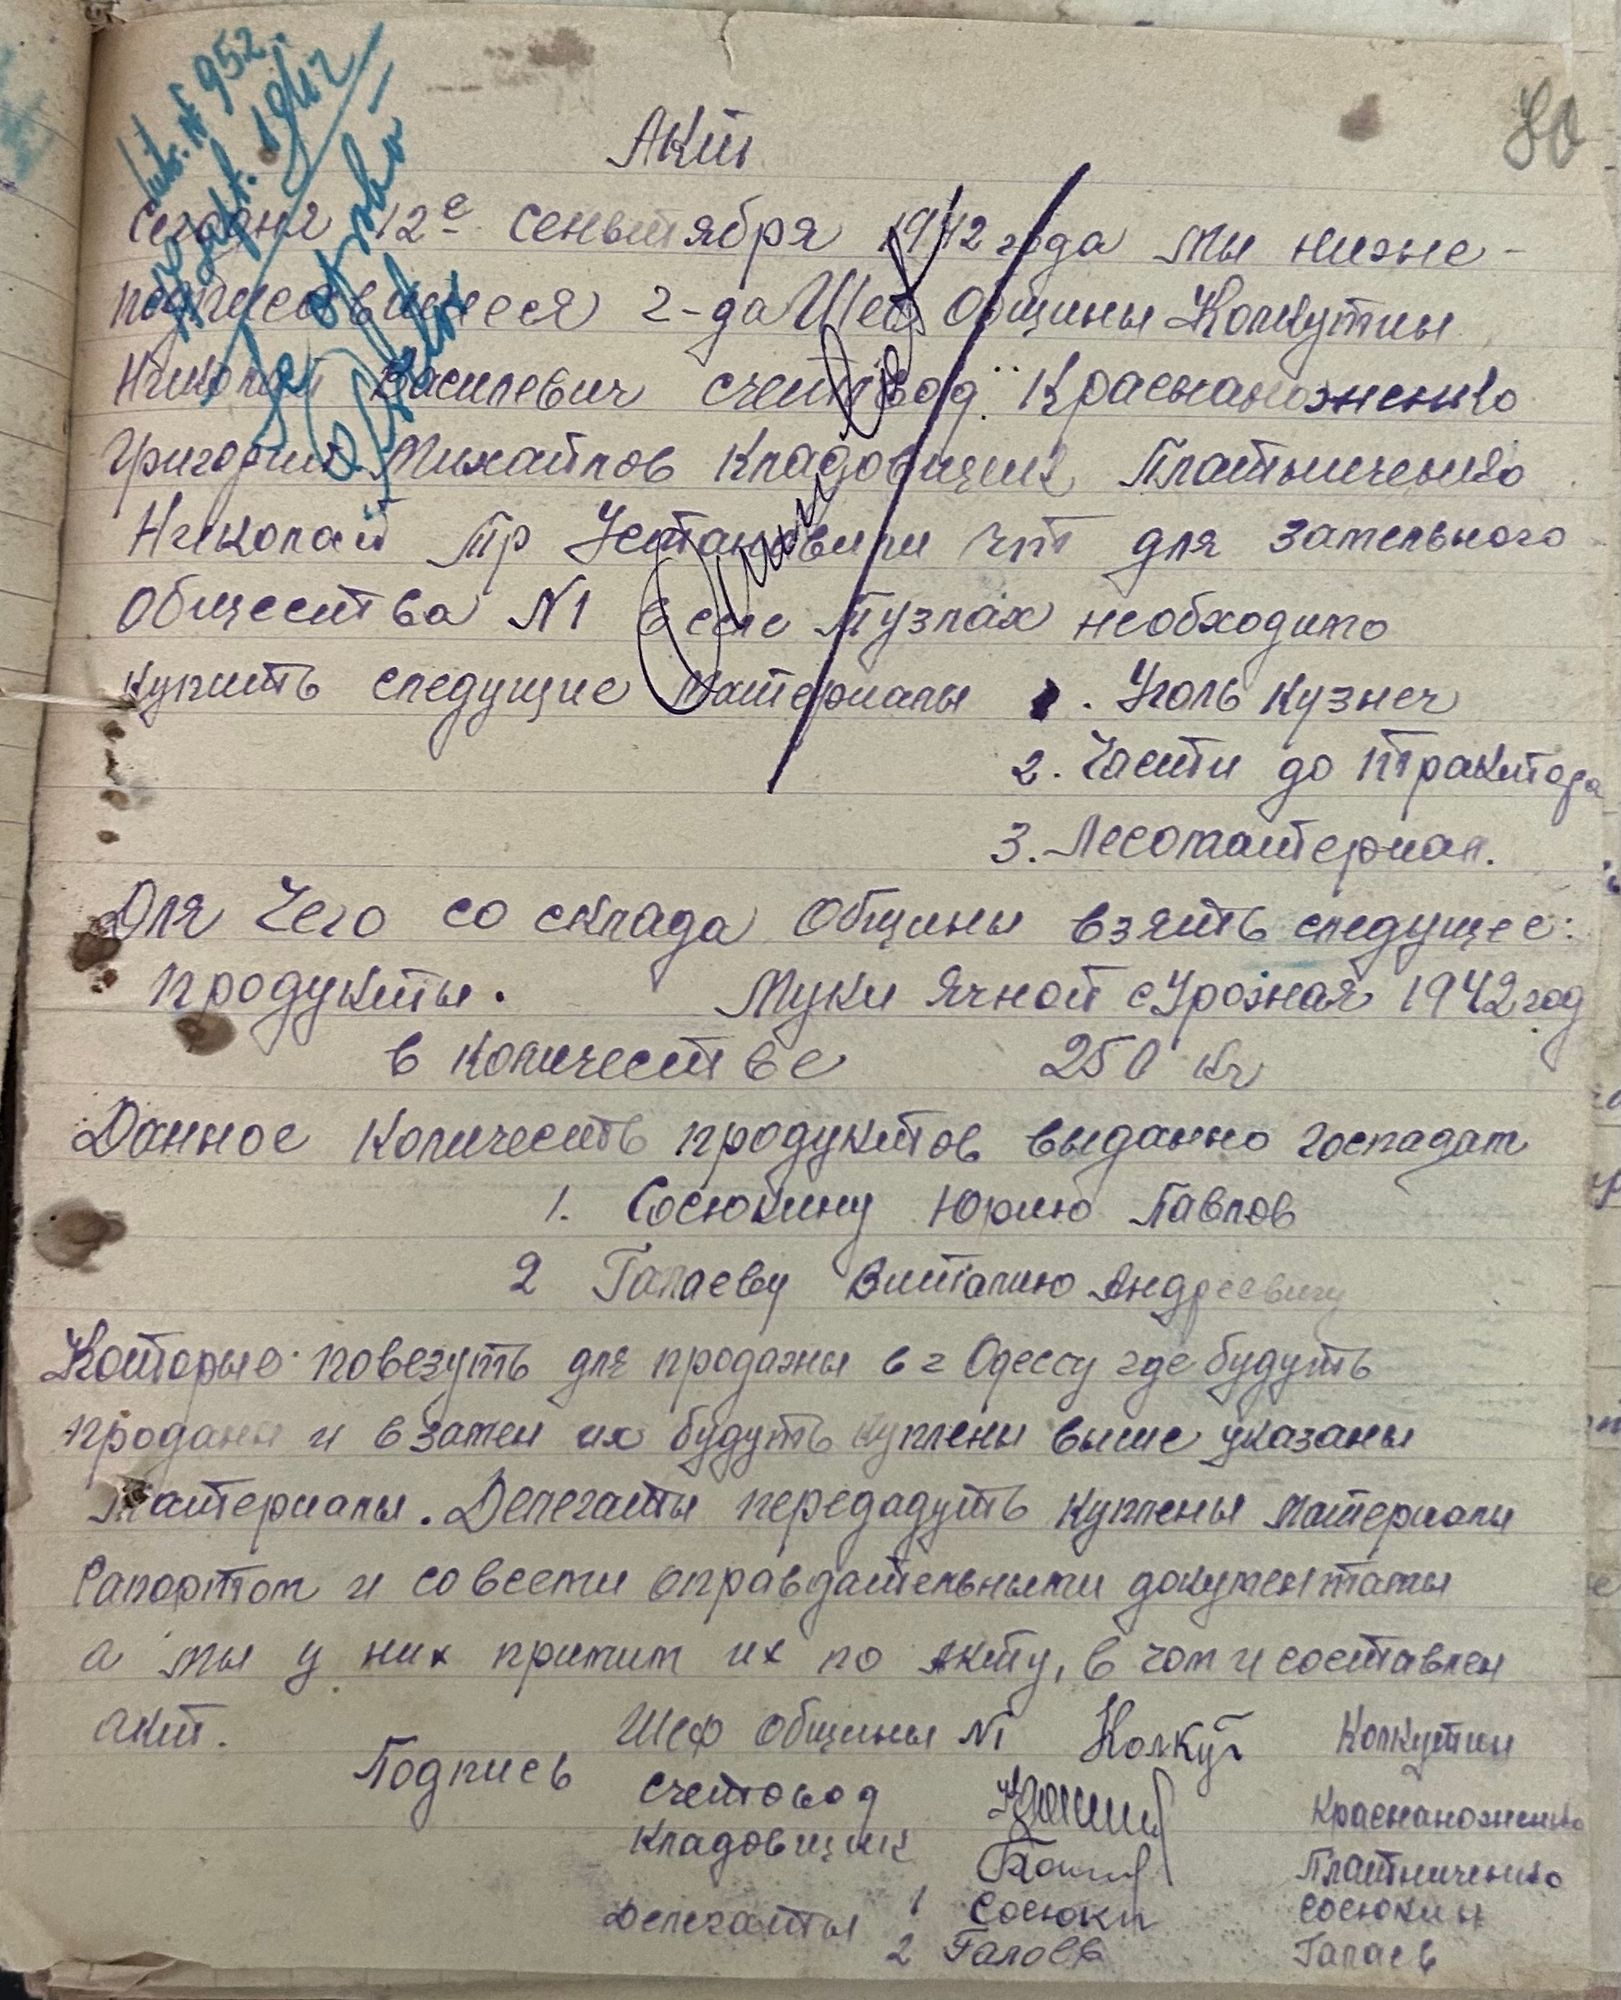 80
№ 952
1942
Акт
Сегодня 12е сеньтября 1942 года мы ниже-
подписавшиеся 2-да Шеф Общины Колкутин
Николай Василевич счетовод Краснаноженко
Григорий Михайлов Кладовщик Платниченко
Николай Пр Установили что для Зательного
Общества №1 в селе Тузлах необходимо
купить следущие материалы 1. Уголь кузнеч
2. Части до трактора
3. Лесоматериал.
Для Чего со склада Общины взять следущее:
продукты. Муки ячной с Урожая 1942 год
в количестве 250 кг
Данное количесть продуктов выданно госпадам
1. Сосюкину Юрию Павлов
2 Галаеву Виталию Андреевичу
Которые повезуть для продажы в г Одессу где будуть
проданы и взамен их будуть куплены выше указаны
материалы. Делегаты передадуть куплены материалы
Рапортом и со всеми оправдательными документамы
а мы у них примим их по Акту, в чом и составлен
акт.
Подпись Шеф Общины №1 Колкут Колкутин
Счетовод Краснаноженко
Кладовщик Платниченко
Делегаты 1 Сосюкин Сосюкин
2 Галаев Галаев